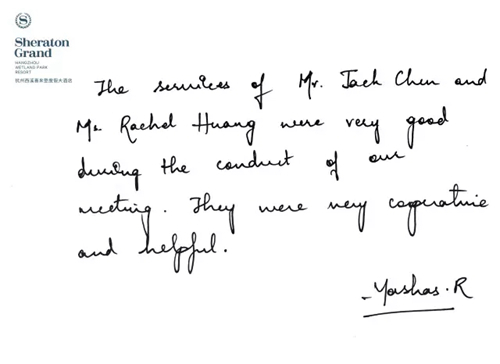 Sheraton
Grand
HANGZHOU
WETLAND PARK
RESORT
杭州西溪喜来登度假大酒店
The services of Mr. Jack Chen and
Ms Rachel Huang were very good
during the conduct of our
meeting. They were very cooperative
and helpful.
- Yashas. R